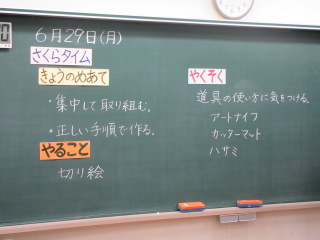 6月29日(月)
さくらタイム
きょうのめあて
・集中して取り組む。
・正しい手順で作る。
やること
切り絵
やくそく
道具の使い方に気をつける。
アートナイフ
カッターマット
ハサミ